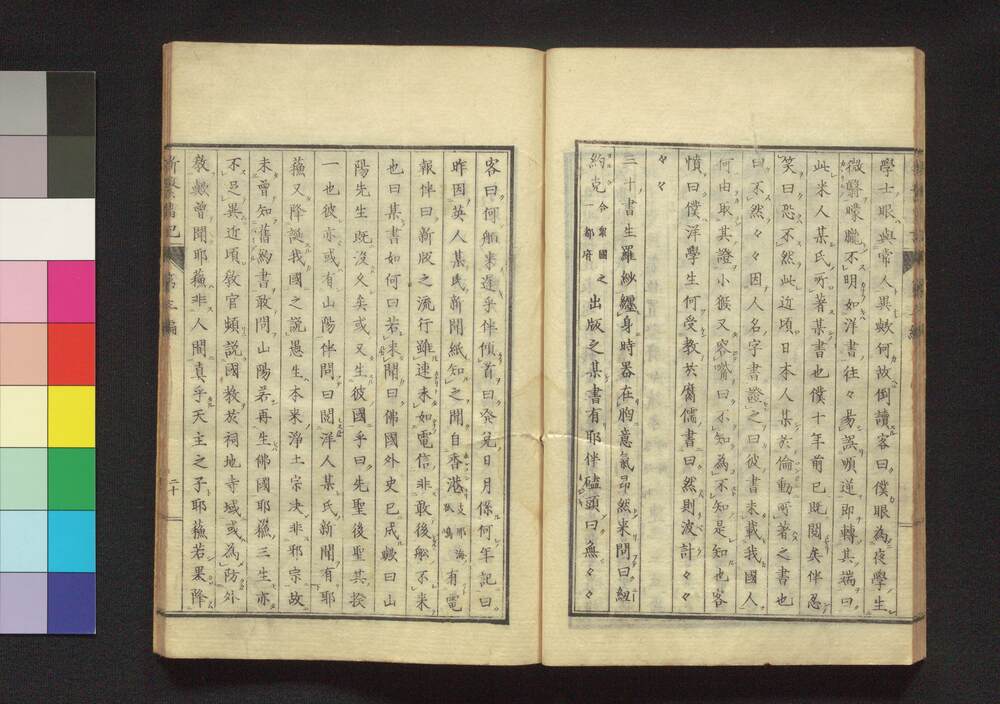 學士眼與常人異歟何故倒讀客曰僕眼為夜學生
微翳曚朧不明如洋書往々易誤順逆即轉其端曰
此米人某氏所著某書也僕十年前已既閲矣伴忍
笑曰恐不然此近頃日本人某某倫動所著之書也
曰不然々々因人名字書證之曰彼書未載我國人
何由取其證小猴又容嘴曰不知為不知是知也客
憤曰僕洋學生何受教於腐儒書曰然則波計々々
々々
三十書生羅紗纒身時器在胸意氣昂然来問曰紐
約克合衆國之一都府出版之某書有耶伴磕頭曰無々々々
客曰何舶来逢乎伴傾首曰発兌日月係何年記曰
昨因英人某氏新聞紙知之聞自香港支那海孤嶋有電
報伴曰新版之流行雖速未如電信非敢後舶不来
也曰某書如何曰若来聞曰佛國外史已成歟曰山
陽先生既沒久矣或又生彼國乎曰先聖後聖其揆
一也彼亦或有山陽伴問曰閲洋人某氏新聞有耶
蘓又降誕我國之說愚生本来淨土宗決非邪宗故
未曾知舊約書敢問山陽若再生佛國耶蘓三生亦
不足異近頃教官頻説國教於祠地寺域或為防外
教歟曾聞耶蘓非人間真乎天主之子耶蘓若果降
第三編
二十